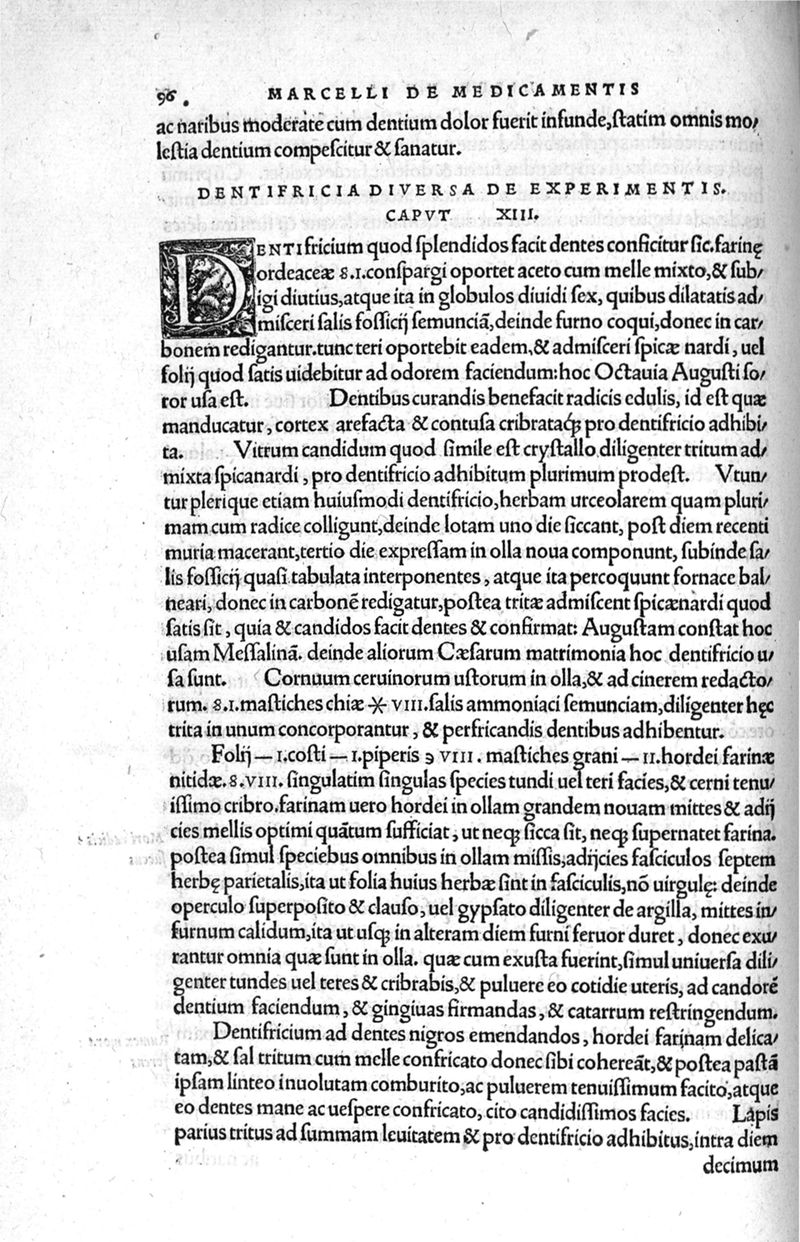 96. MARCELLI DE MEDICAMENTIS
ac naribus moderate cum dentium dolor fuerit infunde, ſtatim omnis mo/
leſtia dentium compeſcitur & ſanatur.
DENTIFRICIA DIVERSA DE EXPERIMENTIS.
CAPVT XIII.
DENTIfricium quod ſplendidos facit dentes conficitur ſic. farinę
ordeaceæ ꝸ.I. conſpargi oportet aceto cum melle mixto, & ſub/
igi diutius, atque ita in globulos diuidi ſex, quibus dilatatis ad/
miſceri ſalis foſſicij ſemunciã, deinde furno coqui, donec in car/
bonem redigantur. tunc teri oportebit eadem, & admiſceri ſpicæ nardi, uel
folij quod ſatis uidebitur ad odorem faciendum: hoc Octauia Auguſti ſo/
ror uſa eſt. Dentibus curandis benefacit radicis edulis, id eſt quæ
manducatur, cortex arefacta & contuſa cribrataq́ꝫ pro dentifricio adhibi/
ta. Vitrum candidum quod ſimile eſt cryſtallo diligenter tritum ad/
mixta ſpicanardi, pro dentifricio adhibitum plurimum prodeſt. Vtun/
tur plerique etiam huiuſmodi dentifricio, herbam urceolarem quam pluri/
mam cum radice colligunt, deinde lotam uno die ſiccant, poſt diem recenti
muria macerant, tertio die expreſſam in olla noua componunt, ſubinde ſa/
lis foſſicij quaſi tabulata interponentes, atque ita percoquunt fornace bal/
neari, donec in carbonẽ redigatur, poſtea tritæ admiſcent ſpicænardi quod
ſatis ſit, quia & candidos facit dentes & confirmat: Auguſtam conſtat hoc
uſam Meſſalinã. deinde aliorum Cæſarum matrimonia hoc dentifricio u/
ſa ſunt. Cornuum ceruinorum uſtorum in olla, & ad cinerem redacto/
rum. ꝸ.I. maſtiches chiæ ⚹ VIII. ſalis ammoniaci ſemunciam, diligenter hęc
trita in unum concorporantur, & perfricandis dentibus adhibentur.
Folij — I. coſti — I. piperis ℈ VIII. maſtiches grani — II. hordei farinæ
nitidæ. ꝸ. VIII. ſingulatim ſingulas ſpecies tundi uel teri facies, & cerni tenu/
iſſimo cribro. farinam uero hordei in ollam grandem nouam mittes & adij
cies mellis optimi quãtum ſufficiat, ut neqꝫ ſicca ſit, neqꝫ ſupernatet farina.
poſtea ſimul ſpeciebus omnibus in ollam miſſis, adijcies faſciculos ſeptem
herbę parietalis, ita ut folia huius herbæ ſint in faſciculis, nõ uirgulę: deinde
operculo ſuperpoſito & clauſo, uel gypſato diligenter de argilla, mittes in/
furnum calidum, ita ut uſqꝫ in alteram diem furni feruor duret, donec exu/
rantur omnia quæ ſunt in olla. quæ cum exuſta fuerint, ſimul uniuerſa dili/
genter tundes uel teres & cribrabis, & puluere eo cotidie uteris, ad candorẽ
dentium faciendum, & gingiuas firmandas, & catarrum reſtringendum.
Dentifricium ad dentes nigros emendandos, hordei farinam delica/
tam, & ſal tritum cum melle confricato donec ſibi cohereãt, & poſtea paſtã
ipſam linteo inuolutam comburito, ac puluerem tenuiſſimum facito, atque
eo dentes mane ac ueſpere confricato, cito candidiſſimos facies. Lapis
parius tritus ad ſummam leuitatem & pro dentifricio adhibitus, intra diem
decimum